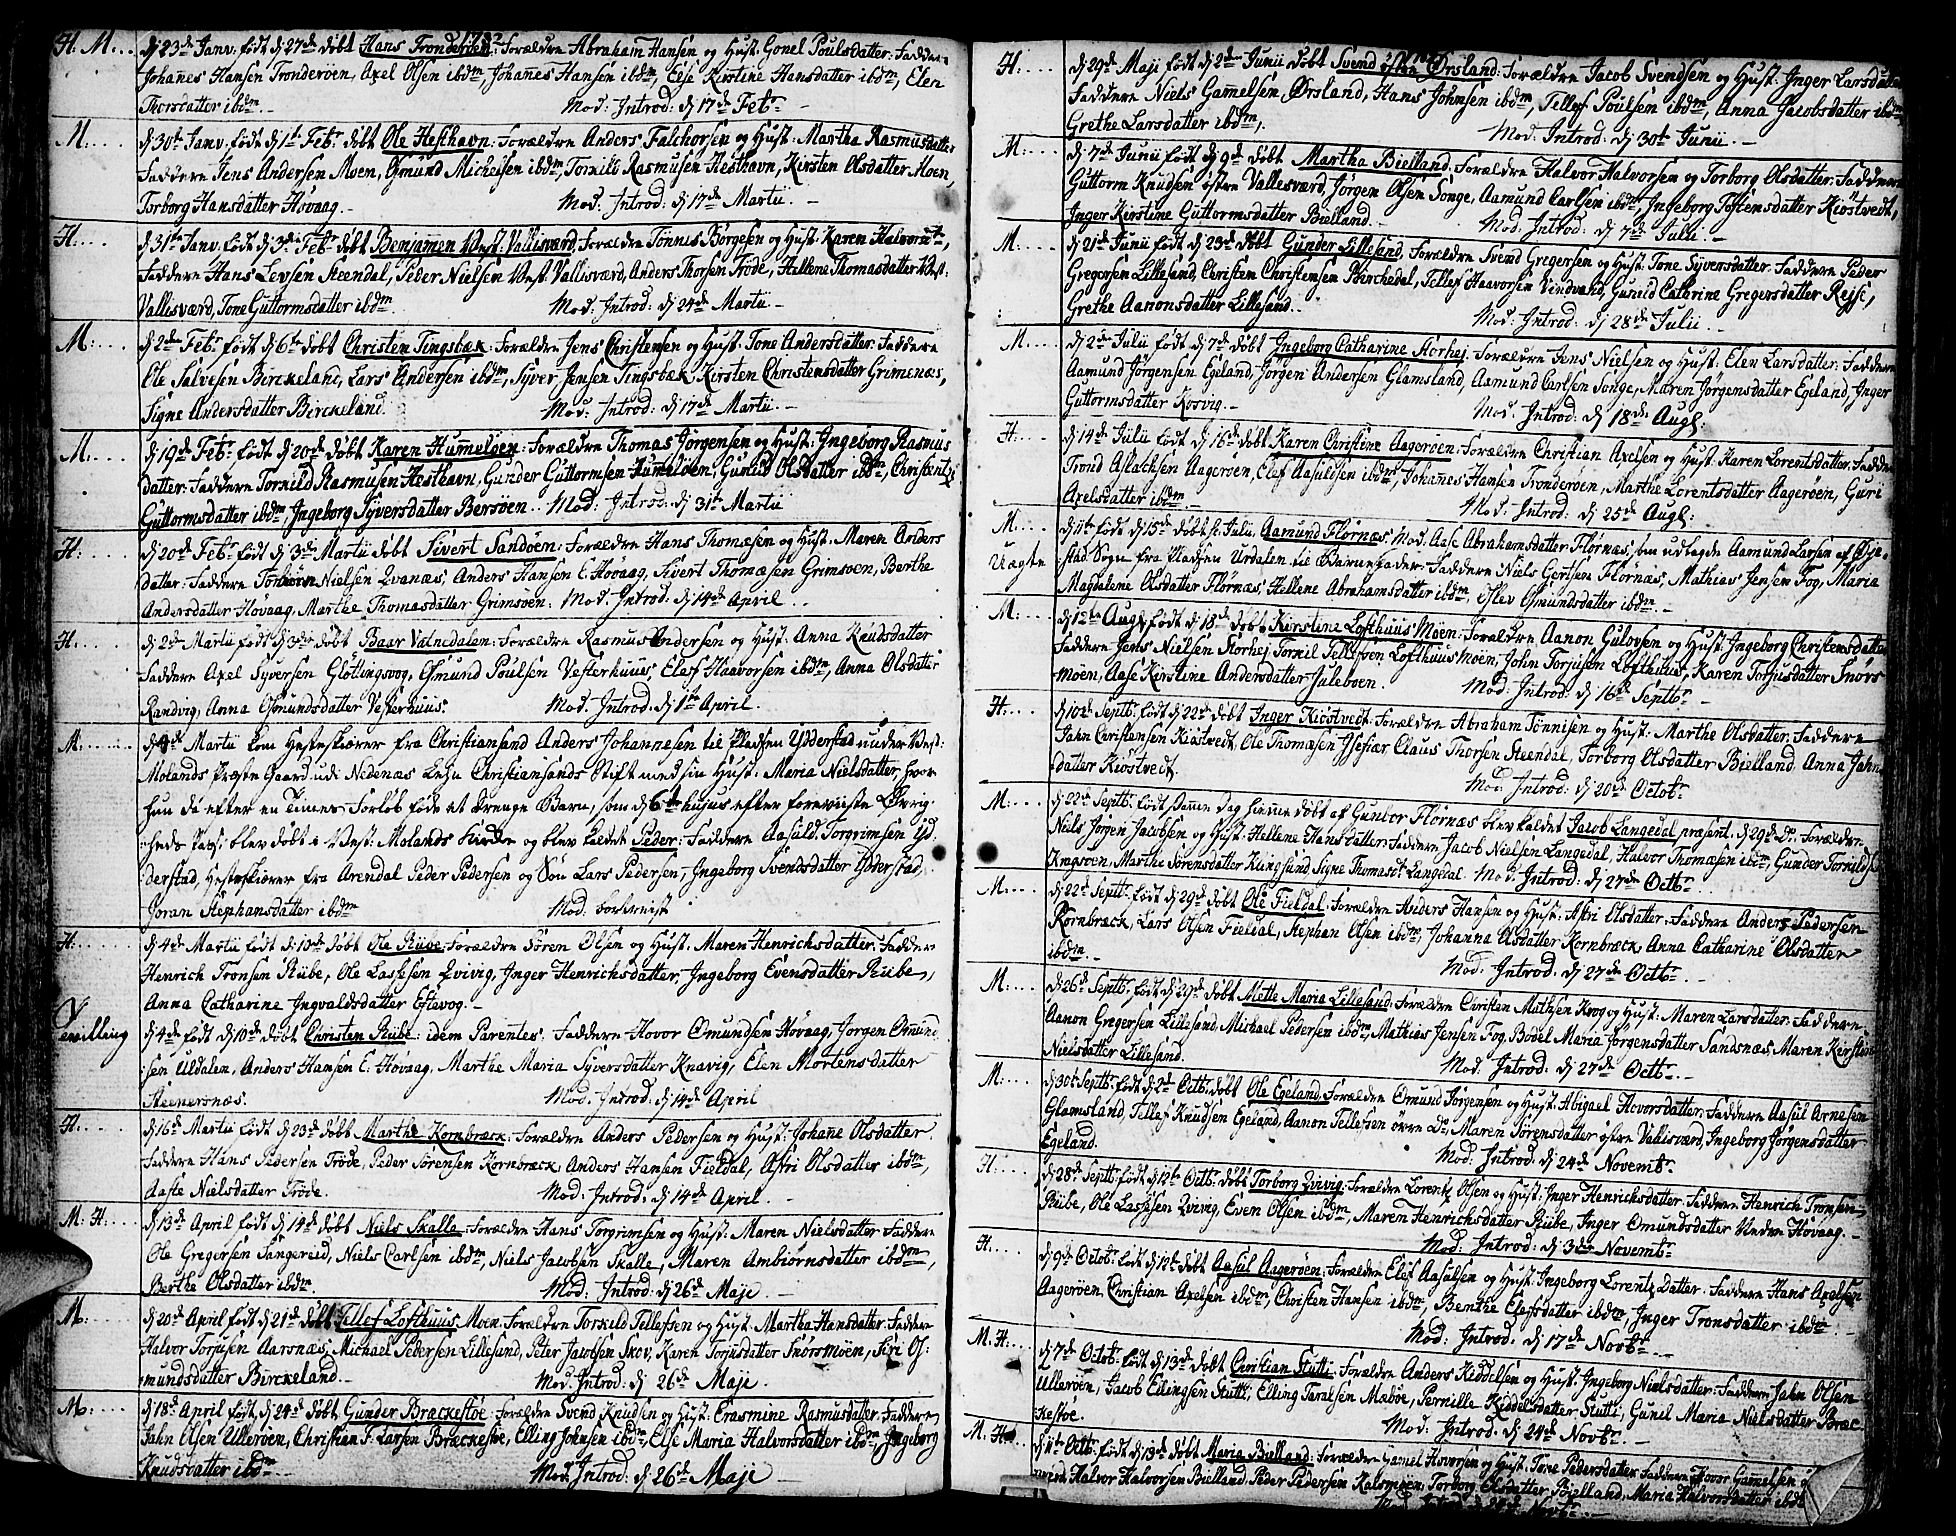 1782
H. M. dj 23de Janv: født dj 27de døbt Hans Tronderøen: Forældre Abraham Hansen og Hust: Gonel Poulsdatter: Faddere
Johañes Hansen Tronderøen, Axel Olsen ibdm, Johañes Hansen ibdm, Else Kirstine Hansdatter ibdm, Elen
Thorsdatter ibdm. Mod: Introd: dj 17de Febr:
M. dj 30te Janv: født dj 1te Febr: døbt Ole Hesthavn: Forældre Anders Falchorsen og Hust: Martha Rasmusdatter
Faddere Jens Andersen Moen, Osmund Michelsen ibdm, Tornild Rasmusen Hesthavn, Kirsten Olsdatter Moen,
Torborg Hansdatter Hovaag. Mod: Introd: dj 17de Martii.
H. dj 31te Janv: født dj 3de Febr: døbt Benjamen Vest: Vallisværd, Forældre Tønnis Børgesen og Hust: Karen Halvorsdtr,
Faddere Hans Levsen Steendal, Peder Nielsen Vest: Vallisværd, Anders Thorsen Trøde, Hellene Thomasdatter Vest:
Vallisværd, Tone Guttormsdatter ibdm. Mod: Introd: dj 24de Martii
M. dj 2den Febr: født dj 6te døbt Christen Tingsbæk: Forældre Jens Christensen og Hust: Tone Andersdatter: Faddere
Ole Salvesen Birckeland, Lars Andersen ibdm, Syver Jensen Tingsbæk, Kirsten Christensdatter Grimenæs,
Signe Andersdatter Birckeland. Mod: Introd: dj 17de Martii.
M. dj 19de Febr: født dj 20de døbt Karen Hummeløen: Forældre Thomas Jørgensen og Hust: Ingeborg Rasmus
datter: Faddere Tornild Rasmusen Hesthavn, Gunder Guttormsen Hummeløen, Gunild Olsdatter ibdm, Christentz
Guttormsdatter ibdm, Ingeborg Syversdatter Bersøen. Mod: Introd: dj 31te Martii
H. dj 20de Febr: født dj 3de Martii døbt Sivert Sandøen: Forældre Hans Thomæsen og Hust: Maren Anders
datter: Faddere Nielsen Qvanæs, Anders Hansen E: Hovaag, Sivert Thomæsen Grimsøen, Berthe
Andersdatter Hovaag, Marthe Thomasdatter Grimsøen. Mod: Introd: dj 14de April
H. dj 2de Martii født dj 3de døbt Baar Valnedalen: Forældre Rasmus Andersen og Hust: Anna Knudsdatter
Faddere Axel Syversen Glöttingsvog, Osmund Poulsen Vesterhuus, Elef Haavorsen ibdm, Anna Olsdatter
Randvig, Anna Osmundsdatter Vesterhuus. Mod: Introd: dj 1te April.
M. Martii kom Hesteskiærer fra Christiansand Anders Johannesen til Pladsen Ydderstad under Vest:
Molands Præste Gaard udi Nedenæs Lehn Christiansands Stift med sin Hust: Maria Nielsdatter, hvor
hun da efter en Times Forløb føde et Drenge Barn, som d. 6te hujus efter foreviiste Øvrig-
heds Pass: blev døbt i Vest: Molands Kirke og blev kaldet Peder: Faddere Aasuld Torgrimsen Yd-
derstad, Hesteskiærer fra Arendal Peder Pedersen og Søn Lars Pedersen, Ingeborg Svendsdatter Ydderstad,
Joran Stephansdatter ibdm Mod: bortreiist
H. dj 4de Martii født d: 10de døbt Ole Rübe: Forældre Søren Olsen og Hust: Maren Henrichsdatter: Faddere
Henrich Tronsen Rübe, Ole Lassesen Qvivig, Inger Henrichsdatter, Ingeborg Evensdatter Rübe,
Anna Catharine Ingvaldsdatter Estevog.
Tvilling dj 4de født dj 10de døbt Christen Rübe: idem Parentes. Faddere Hovor Omundsen Hovaag, Jørgen Omund-
sen Uldalen, Anders Hansen E: Hovaag, Marthe Maria Syversdatter Knavig, Elen Mortensdatter
Steenersnæs. Mod: Introd: dj 14de April
H. dj 16de Martii født dj 23de døbt Marthe Kornbræck: Forældre Anders Pedersen og Hust: Johañe Olsdatter.
Faddere Hans Pedersen Trøde, Peder Sørensen Kornbræck, Anders Hansen Fieldal, Astri Olsdatter ibdm,
Aaste Nielsdatter Trøde. Mod: Introd: dj 14de April.
M. H. dj 13de April født dj 14de døbt Niels Skalla: Forældre Hans Torgrimsen og Hust: Maren Nielsdatter: Faddere
Ole Gregersen Sangereid, Niels Carlsen ibdm, Niels Jacobsen Skalle, Maren Ambiørnsdatter ibdm,
Berthe Olsdatter ibdm. Mod: Introd: dj 26de Maje.
M. dj 20de April født dj 21de døbt Tellef Lofthuus Moen. Forældre Torkeld Tellefsen og Hust: Martha Hansdatter: Faddere
Halvor Torjusen Aarsnæs, Michael Pedersen Lillesand, Peter Jacobsen Skov, Karen Torjusdatter Snorsmoen, Siri Os-
mundsdatter Birckeland. Mod: Introd: dj 26de Maje.
M. dj 18de April født dj 24de døbt Gunder Brackestøe: Forældre Svend Knudsen og Hust: Erasmine Rasmusdatter: Faddere
Jahn Olsen Ulleröen, Christian F: Larsen Bræckestøe, Elling Johnsen ibdm, Else Maria Halvorsdatter ibdm, Ingeborg
Knudsdatter ibdm. Mod: Introd: dj 26de Maje
H. dj 29de Maji født dj 2de Junii døbt Svend østre Ørsland: Forældre Jacob Svendsen og Hust: Inger Larsdatter
Faddere Niels Gamelsen Ørsland, Hans Johnsen ibdm, Tellef Poulsen ibdm, Anna Jacobsdatter ibdm,
Grethe Larsdatter ibdm. Mod: Introd: dj 30te Junii.
M. dj 7de Junii født dj 9de døbt Martha Bielland: Forældre Halvor Halvorsen og Torborg Olsdatter: Faddere
Guttorm Knudsen østre Vallesværd, Jørgen Olsen Songe, Aamund Carlsen ibdm, Ingeborg Tostensdatter Kiøstvedt,
Inger Kirstine Guttormsdatter Bielland. Mod: Introd: dj 7de Julii.
M. dj 21de Junii født dj 23de døbt Gunder Lillesand: Forældre Svend Gregersen og Hust: Tone Syversdatter: Faddere Peder
Gregersen Lillesand, Christen Christensen Birchedal, Tellef Haavorsen Vindvold, Guneld Cathrine Gregersdatter Rejse,
Grethe Aanonsdatter Lillesand. Mod: Introd: dj 28de Julii.
M. dj 2de Julii født dj 7de døbt Ingeborg Catharine Storhej: Forældre Jens Nielsen og Hust: Elen Larsdatter: Faddere
Aamund Jørgensen Egeland, Jørgen Andersen Glamsland, Aamund Carlsen Songe, Maren Jørgensdatter Egeland, Inger
Guttormsdatter Kosvig. Mod: Introd: dj 18de Augl:
H. dj 14de Julii født dj 16de døbt Karen Christine Aagerøen: Forældre Christian Axelsen og Hust: Karen Lorentsdatter: Faddere
Trond Aslachsen Aagerøen, Elef Aasulsen ibdm, Johañes Hansen Tronderøen, Marthe Lorentsdatter Aagerøen, Guri
Axelsdatter ibdm. Mod: Introd: dj 25de Augl:
M. Uægte dj 11te født dj 15de døbt Julii Aamund Flørnæs: Mod: Aase Abrahamsdatter Flørnæs, som udlagde Aamund Larsen af Øye-
stad Sogn fra Pladsen Urdalen til Barnefader: Faddere Niels Gertsen Flørnæs, Mathias Jensen Fog, Maria
Magdalene Olsdatter Flørnæs, Hellene Abrahamsdatter ibdm, Eslev Osmundsdatter ibdm.
M. dj 12te Augl født dj 18de døbt Kirstine Lofthuus Moen: Forældre Aanon Gulovsen og Hust: Ingeborg Christensdatter
Faddere Jens Nielsen Storhej, Tornil Tellefsen Lofthuus Moen, John Torjusen Lofthuus, Karen Torjusdatter Snørs
moen, Aase Kirstine Andersdatter Juleboen. Mod: Introd: dj 16de Septbr
H. dj 10de Septb: født dj 22de døbt Inger Kiöstvedt: Forældre Abraham Tönnisen og Hust: Marthe Olsdatter: Faddere
Jahn Christensen Kiöstvedt, Ole Thomæsen, Claus Thorsen Steendal, Torborg Olsdatter Bielland, Anna Jahns
datter Kiöstvedt. Mod: Introd: dj 20de Octob:
M. dj 22de Septb: født, samme Dag hjemme døbt af Guntor Flørnæs blev kaldet Jacob Langedal, præsent: dj 29de Do. Forældre
Niels Jørgen Jacobsen og Hust: Hellene Hansdatter: Faddere Jacob Nielsen Langedal, Halvor Thomæsen ibdm, Gunder Tornildsen
Kragsøen, Marthe Sørensdatter Kungsund, Signe Thomasdt: Langedal. Mod: Introd: dj 27de Octb:
M. dj 22de Septb: født dj 29de døbt Ole Fieldal: Forældre Anders Hansen og Hust: Astri Olsdatter: Faddere Anders Pedersen
Kornbræck, Lars Olsen Fieldal, Stephan Olsen ibdm, Johanna Olsdatter Kornbræck, Anna Catharine Olsdatter
ibdm. Mod: Introd: dj 27de Octb:
M. dj 26de Septb: født dj 29de døbt Mette Maria Lillesand: Forældre Christen Mathsen Krog og Hust: Maren Larsdatter: Faddere
Aanon Gregersen Lillesand, Michael Pedersen ibdm, Mathias Jensen Fog, Bodel Maria Jørgensdatter Sandsnæs, Maren Kirstine
Nielsdatter Lillesand. Mod: Introd: dj 27de Octb:
M. dj 30te Septb: født dj 2de Octb: døbt Ole Egeland: Forældre Omund Jørgensen og Hust: Abigael Hovorsdatter: Faddere Aasul Arnesen
Glamsland, Tellef Knudsen Egeland, Aanon Tellefsen øvre Do, Maren Sørensdatter østre Vallisværd, Ingeborg Jørgensdatter
Egeland. Mod: Introd: dj 24de Novembr
H. dj 28de Septb: født dj 12te Octb: døbt Torborg Qvivig: Forældre Lorentz Olsen og Hust: Inger Henrichsdatter: Faddere Henrich Tronsen
Rübe, Ole Lassesen Qvivig, Even Olsen ibdm, Maren Henrichsdatter Rübe, Inger Omundsdatter Neder Hovaag.
Mod: Introd: dj 3de Novembr
H. dj 9de Octob: født dj 12te døbt Aasul Aagerøen: Forældre Elef Aasulsen og Hust: Ingeborg Lorentzdatter: Faddere Hans Axelsen
Aagerøen, Christian Axelsen ibdm, Christen Hansen ibdm, Benthe Elefsdatter ibdm, Inger Tronsdatter ibdm.
Mod: Introd: dj 17de Novbr
M. H. dj 7de Octob: født dj 13de døbt Christian Stutti: Forældre Anders Kiddelsen og Hust: Ingeborg Nielsdatter: Faddere Jahn Olsen
Ullerøen, Jacob Ellingsen Stutti, Elling Taralsen Madöe, Pernille Kiddelsdatter Stutti, Gunil Maria Nielsdatter Bræc-
kestøe. Mod: Introd: dj 24de Novbr
M. H. dj 11te Octb: født dj 13de døbt Maria Bielland: Forældre Gamel Hovorsen og Hust: Tone Pedersdatter: Faddere Hovor Gamelsen
Halvor Halvorsen Bielland, Peder Pedersen Kalsmoen, Torborg Olsdatter Bielland, Maria Halvorsdatter ibdm
Mod: Introd: dj 24de Novbr